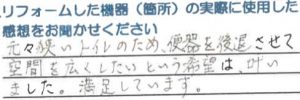 リフォームした機器（箇所）の実際に使用した
感想をお聞かせください
元々狭いトイレのため、便器を後退させて
空間を広くしたいという希望は、叶い
ました。満足しています。